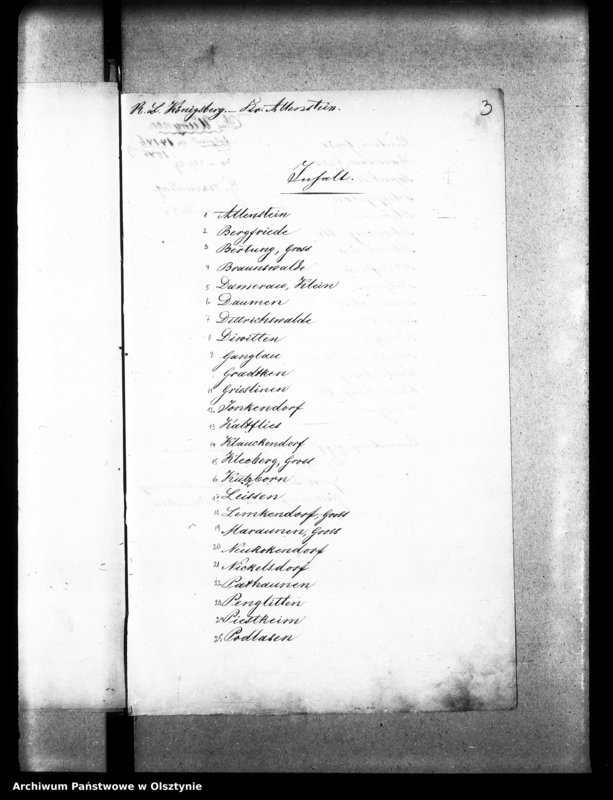 R. L. Königsberg. – Kr. Allenstein.
3
Inhalt.
1 Allenstein
2 Bergfriede
3 Bertung, Gross
4 Braunswalde
5 Damerau, Klein
6 Daumen
7 Dittrichswalde
8 Diwitten
9 Ganglau
Gradtken
11 Grieslinen
12 Jonkendorf
13 Kaltflies
14 Klauckendorf
15 Kleeberg, Gross
16 Kutzborn
17 Leissen
18 Lemkendorf, Gross
19 Maraunen, Gross
20 Neukokendorf
21 Nickelsdorf
22 Pathaunen
23 Penglitten
24 Piestkeim
25 Podlasen
Archiwum Państwowe w Olsztynie